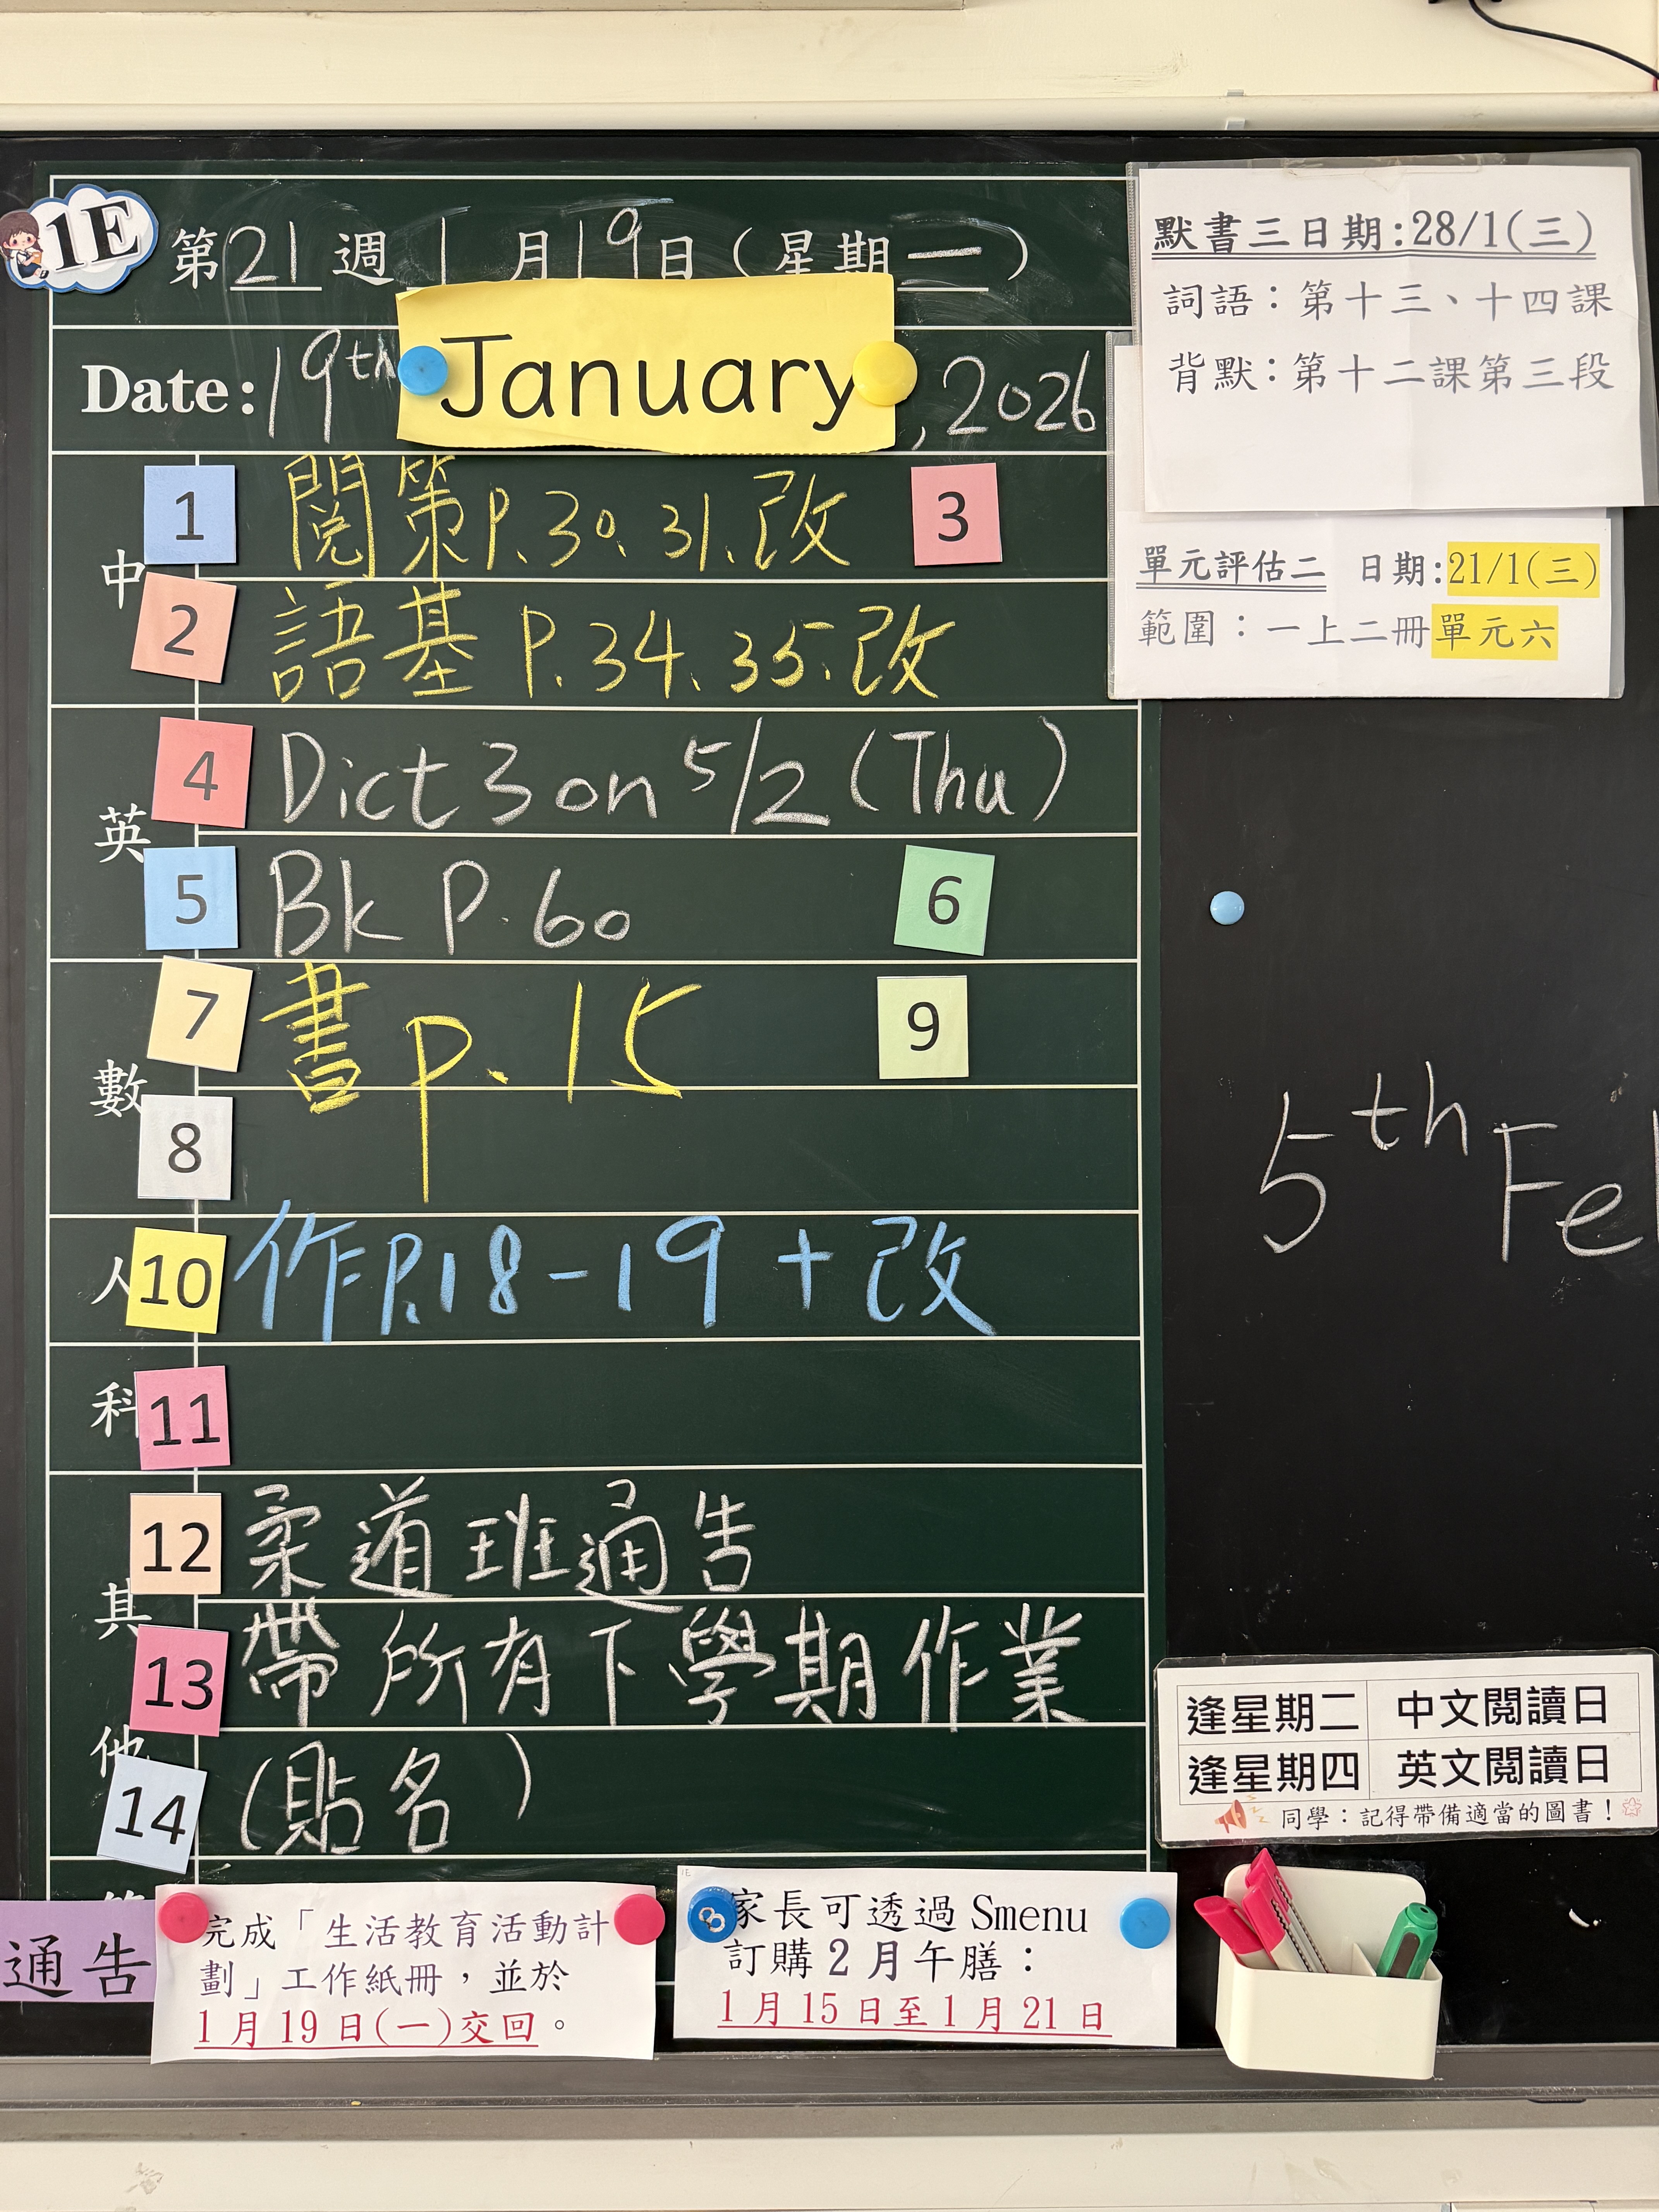 1E
第21週 1月19日(星期一)
Date: 19th January, 2026
中
1 閱策P.30、31、改 3
2 語基 P.34、35、改
英
4 Dict 3 on 5/2 (Thu)
5 Bk P.60 6
數
7 書p.15 9
8
人
10 作P.18-19 + 改
科
11
其他
12 柔道班通告
13 帶所有下學期作業
14 (貼名)
通告
完成「生活教育活動計
劃」工作紙冊，並於
1月19日(一)交回。
1E
8
家長可透過 Smenu
訂購2月午膳：
1月15日至1月21日
默書三日期:28/1(三)
詞語：第十三、十四課
背默：第十二課第三段
單元評估二 日期:21/1(三)
範圍：一上二冊單元六
5th Fe
逢星期二 中文閱讀日
逢星期四 英文閱讀日
同學：記得帶備適當的圖書！